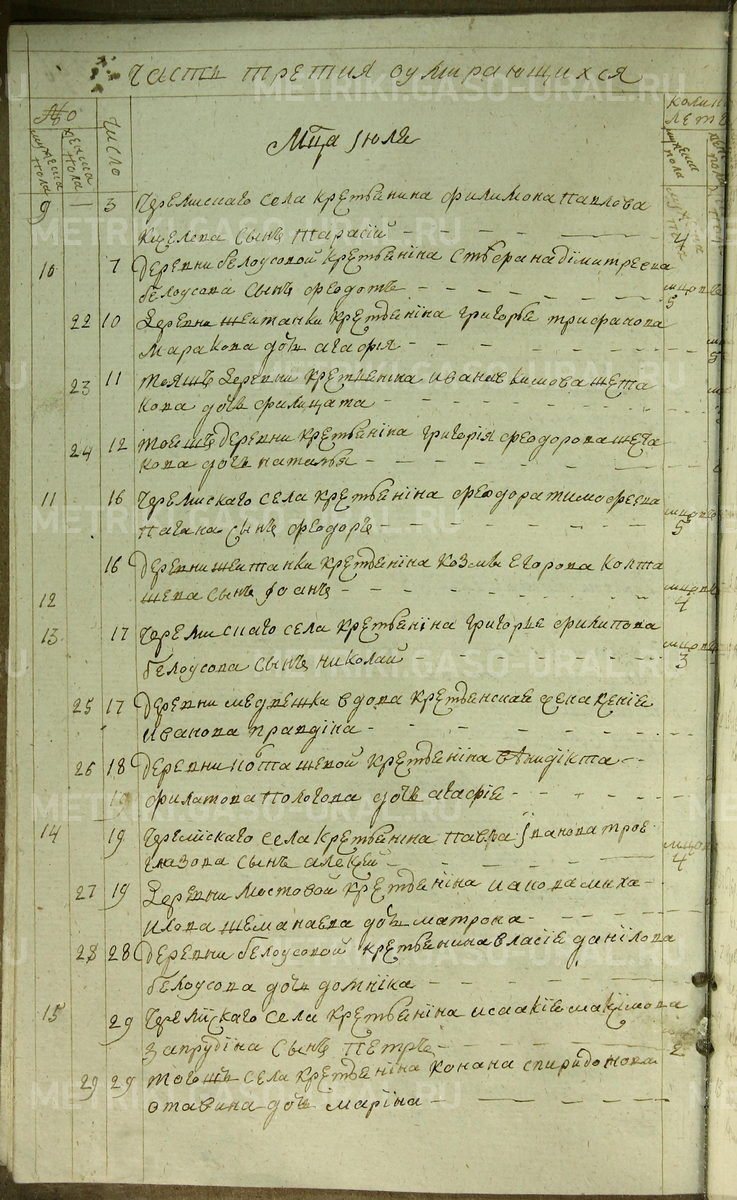 Часть третия о умирающихся
№
мужеска пола
женска пола
число
Мца Июля
колико лет
мужеска пола
9 — 3 Черемискаго села крестьянина Филимона Павлова
Киселева сынъ Тарасий 4
10 7 деревни Белоусовой крестьянина Димитреева
Белоусова сынъ Феодотъ 5
22 10 деревни Шайтанки крестьянина Григорье Трифанова
Маракова дочь Агафия
23 11 тояжъ деревни крестьянина Ивана Щета
кова дочь Филицата
24 12 тоижъ деревни крестьянина Григория Феодорова Щета
кова дочь Наталья
11 16 Черемискаго села крестьянина Феодора Тимофеева
сынъ Феодоръ 5
16 деревни Шайтанки крестьянина Козмы Егорова Колта
шева сынъ Иоанъ
12 4
13 17 Черемискаго села крестьянина Григорье Филипова
Белоусова сынъ Николай 3
25 17 деревни Медвешки вдова крестьянская жена Ксение
Иванова Правдина
26 18 деревни Колташевой крестьянина Венидикта
19 Филатова Пологова дочь Агафие
14 19 Черемискаго села крестьянина Павла Иванова Трое
глазова сынъ Алексей 4
27 19 деревни Мостовой крестьянина Иакова Миха
илова Шеманаева дочь Матрона
28 28 деревни Белоусовой крестьянина Власие Данилова
Белоусова дочь Домника
15 29 Черемискаго села крестьянина Исаакие Макимова
Запрудина сынъ Петръ 2
29 29 тогожъ села крестьянина Конана Спиридонова
Отавина дочь Марина
METRIKI.RASO-URAL.RU